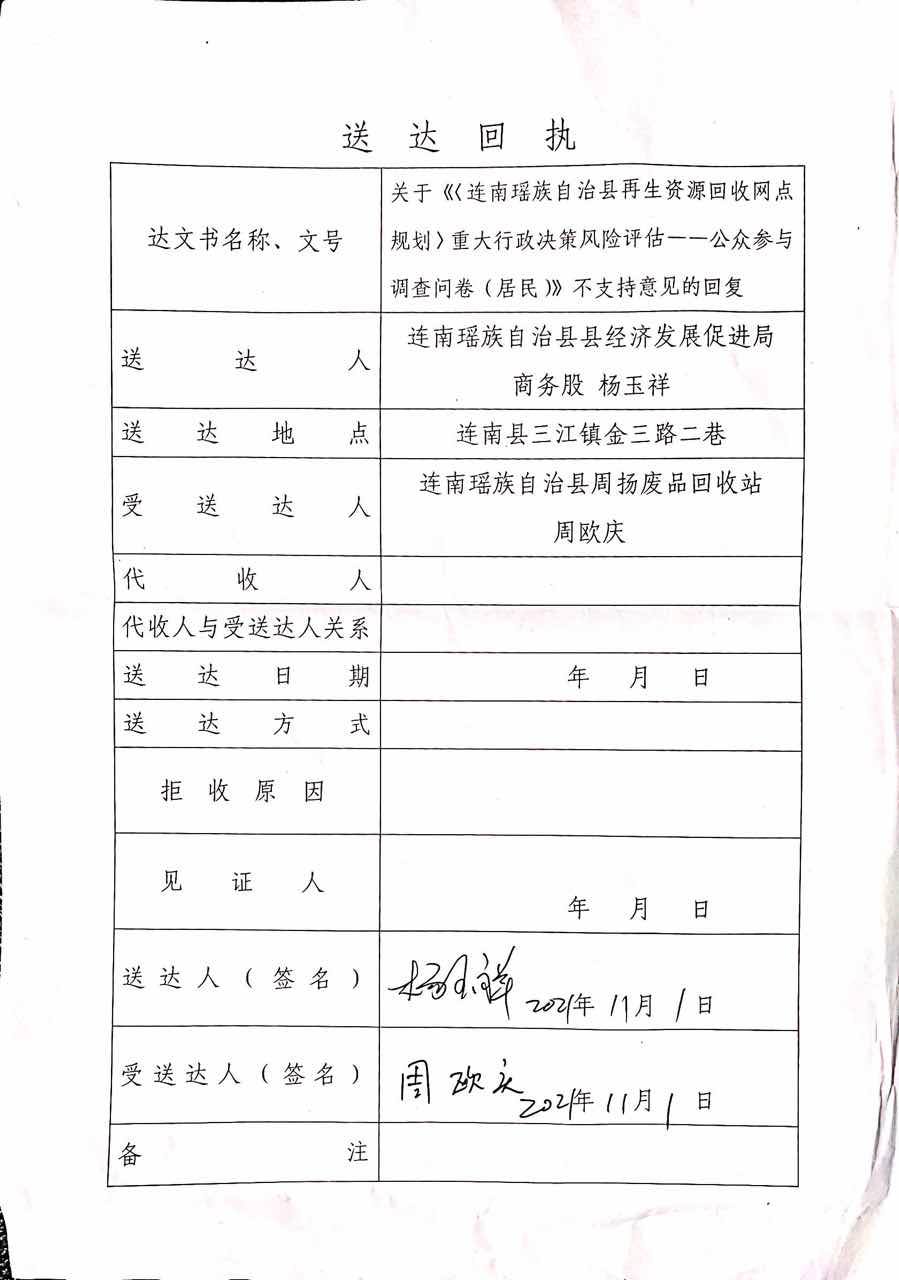 送达回执
达文书名称、文号
关于《〈连南瑶族自治县再生资源回收网点
规划〉重大行政决策风险评估——公众参与
调查问卷(居民)》不支持意见的回复
送达人
连南瑶族自治县县经济发展促进局
商务股 杨玉祥
送达地点
连南县三江镇金三路二巷
受送达人
连南瑶族自治县周扬废品回收站
周欧庆
代收人
代收人与受送达人关系
送达日期
年 月 日
送达方式
拒收原因
见证人
年 月 日
送达人(签名)
杨玉祥 2021年 11月 1日
受送达人(签名)
周欧庆 2021年 11月 1日
备注